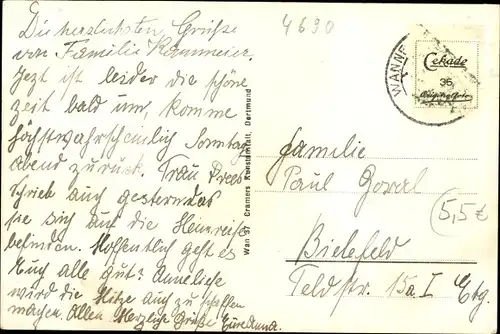 Die herzlichsten Grüße
von Familie Kammeier.
Jezt ist leider die schöne
zeit bald um, komme
höchstwahrscheinlich Sonntag
Abend zurück. Frau
schrieb auch gestern das
sie sich auf die Heimreise
befinden. Hoffentlich geht es
Euch alle gut? Anneliese
wird die Hitze auch zu schaffen
machen. Allen Herzliche Grüße Eure Anna.
4690
WANNE
Cekade
36
Originalfoto
Wan 37 Cramers Kunstanstalt, Dortmund
Familie
Paul
Bielefeld
Feldstr. 15a. I Etg.
5,5€